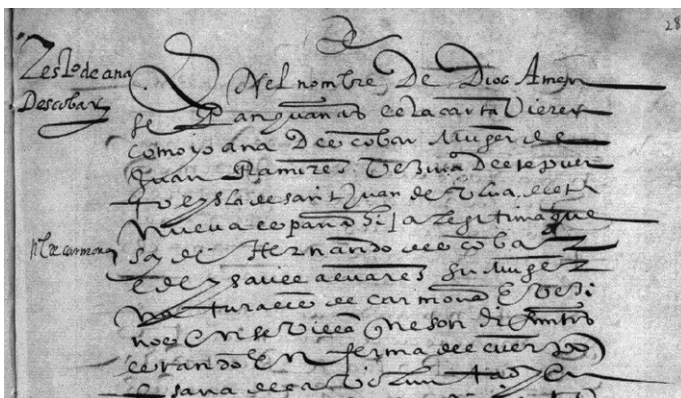 28
Testo de ana
Descobar
En el nombre De Dios Amen
sepan quantos esta carta Vieren
como yo ana De escobar Muger de
Juan Ramirez Vezina de este puer
to e ysla de sant Juan de Ulua de esta
nueva espana hija legitima que
soy de Hernando de escobar
N de carmona
e de ysavel alvares su Muger
naturales de carmona E Vezi
nos en sevilla que son difuntos
estando Enferma del cuerpo
E sana de la Voluntad En